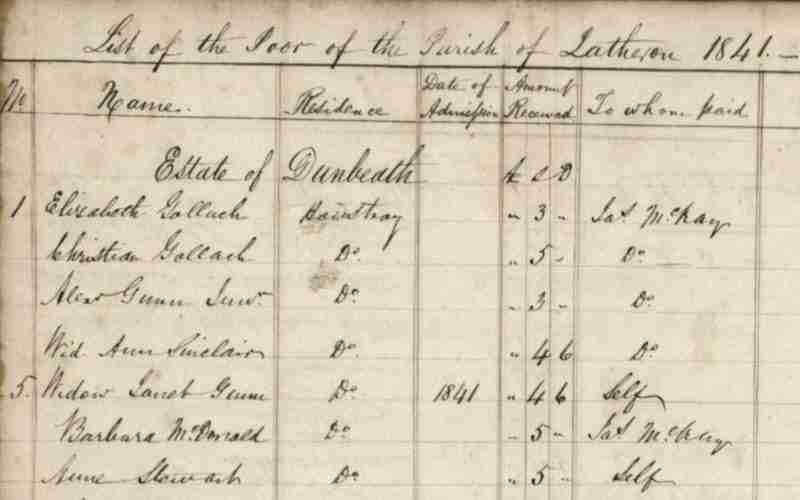 List of the Poor of the Parish of Latheron 1841. –
No. Name. Residence Date of Admission Amount Received To whom paid
Estate of Dunbeath £ S D
1 Elizabeth Gollach " 3 " Jas. McKay
Christian Gollach Do. " 5 " Do.
Alexr Gunn Junr. Do. " 3 " Do.
Wid. Ann Sinclair Do. " 4 6 Do.
5. Widow Janet Gunn Do. 1841 " 4 6 Self
Barbara McDonald Do. " 5 " Jas. McKay
Anne Stewart Do. " 5 " Self